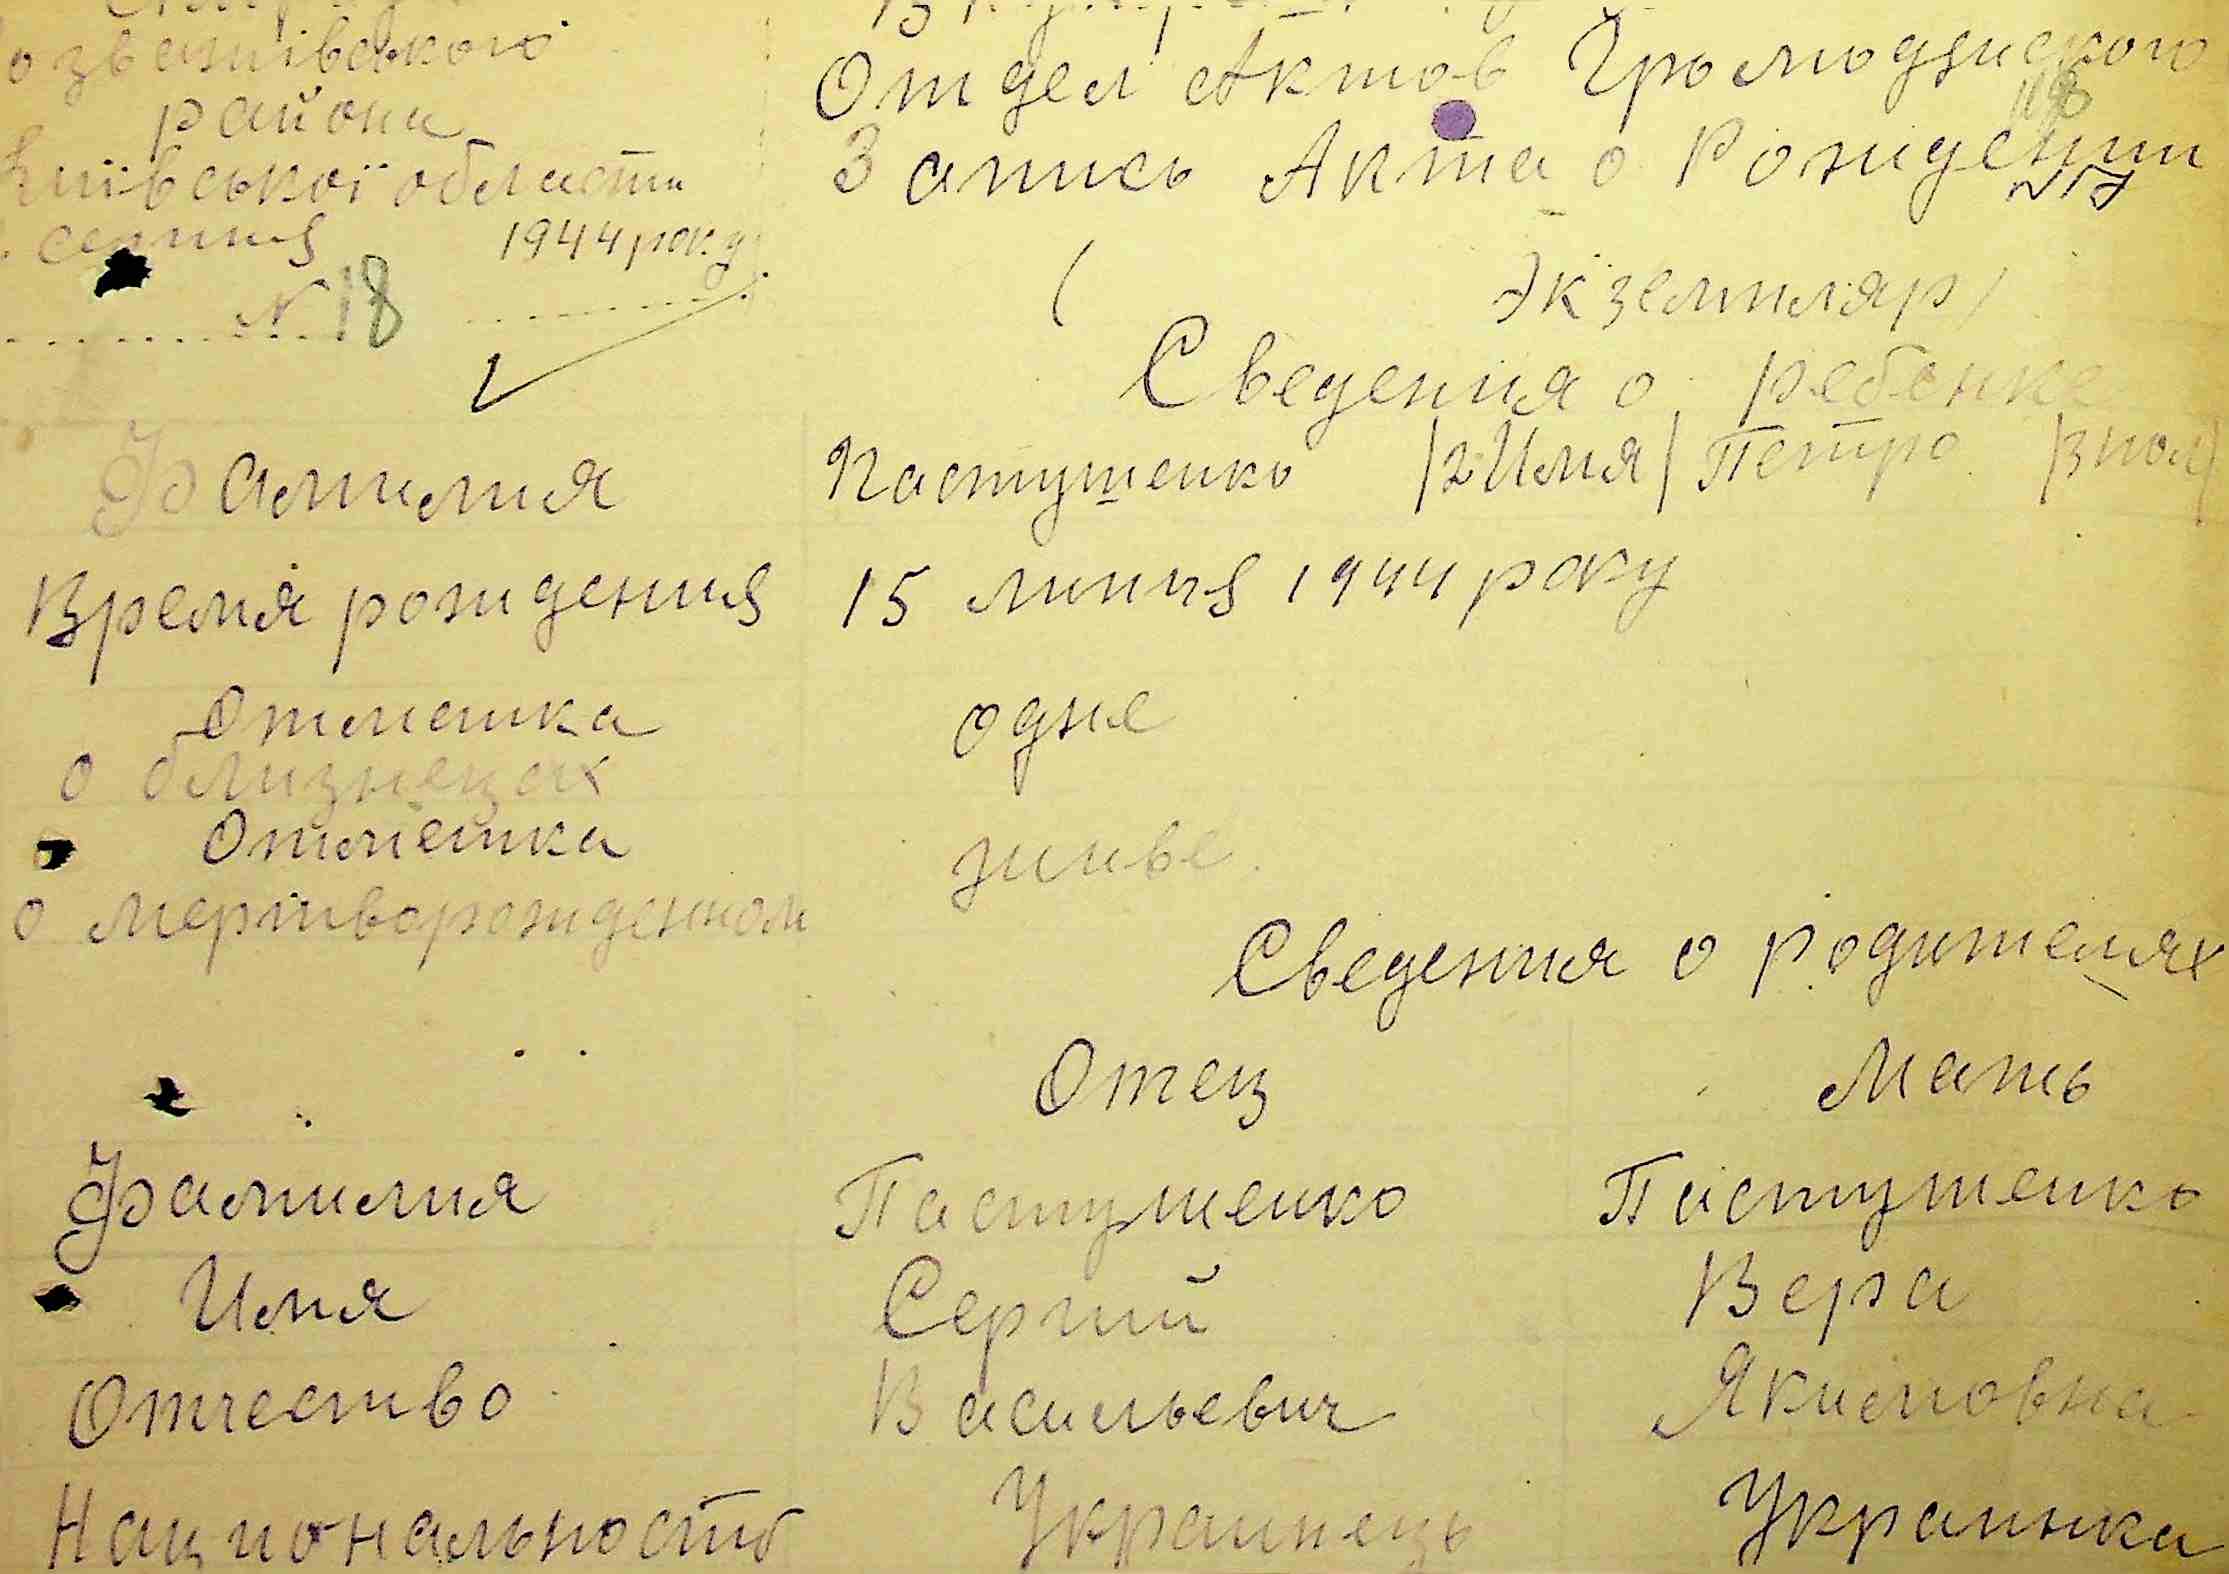 района
Київської области
серпня 1944 року
N 18
Отдел Актов Громодянского
118
Запись Акта о Рождении
N 17
( Экземпляр)
Сведения о ребенке
Фамилия Пастушенко /2 Имя/ Петро /3 пол/
Время рождения 15 липня 1944 року
Отметка одне
о близнецах
Отметка живе
о мертворожденном
Сведения о родителях
Отец Мать
Фамилия Пастушенко Пастушенко
Имя Сергий Вера
Отчество Васильевич Якимовна
Националъность Украинець Украинка